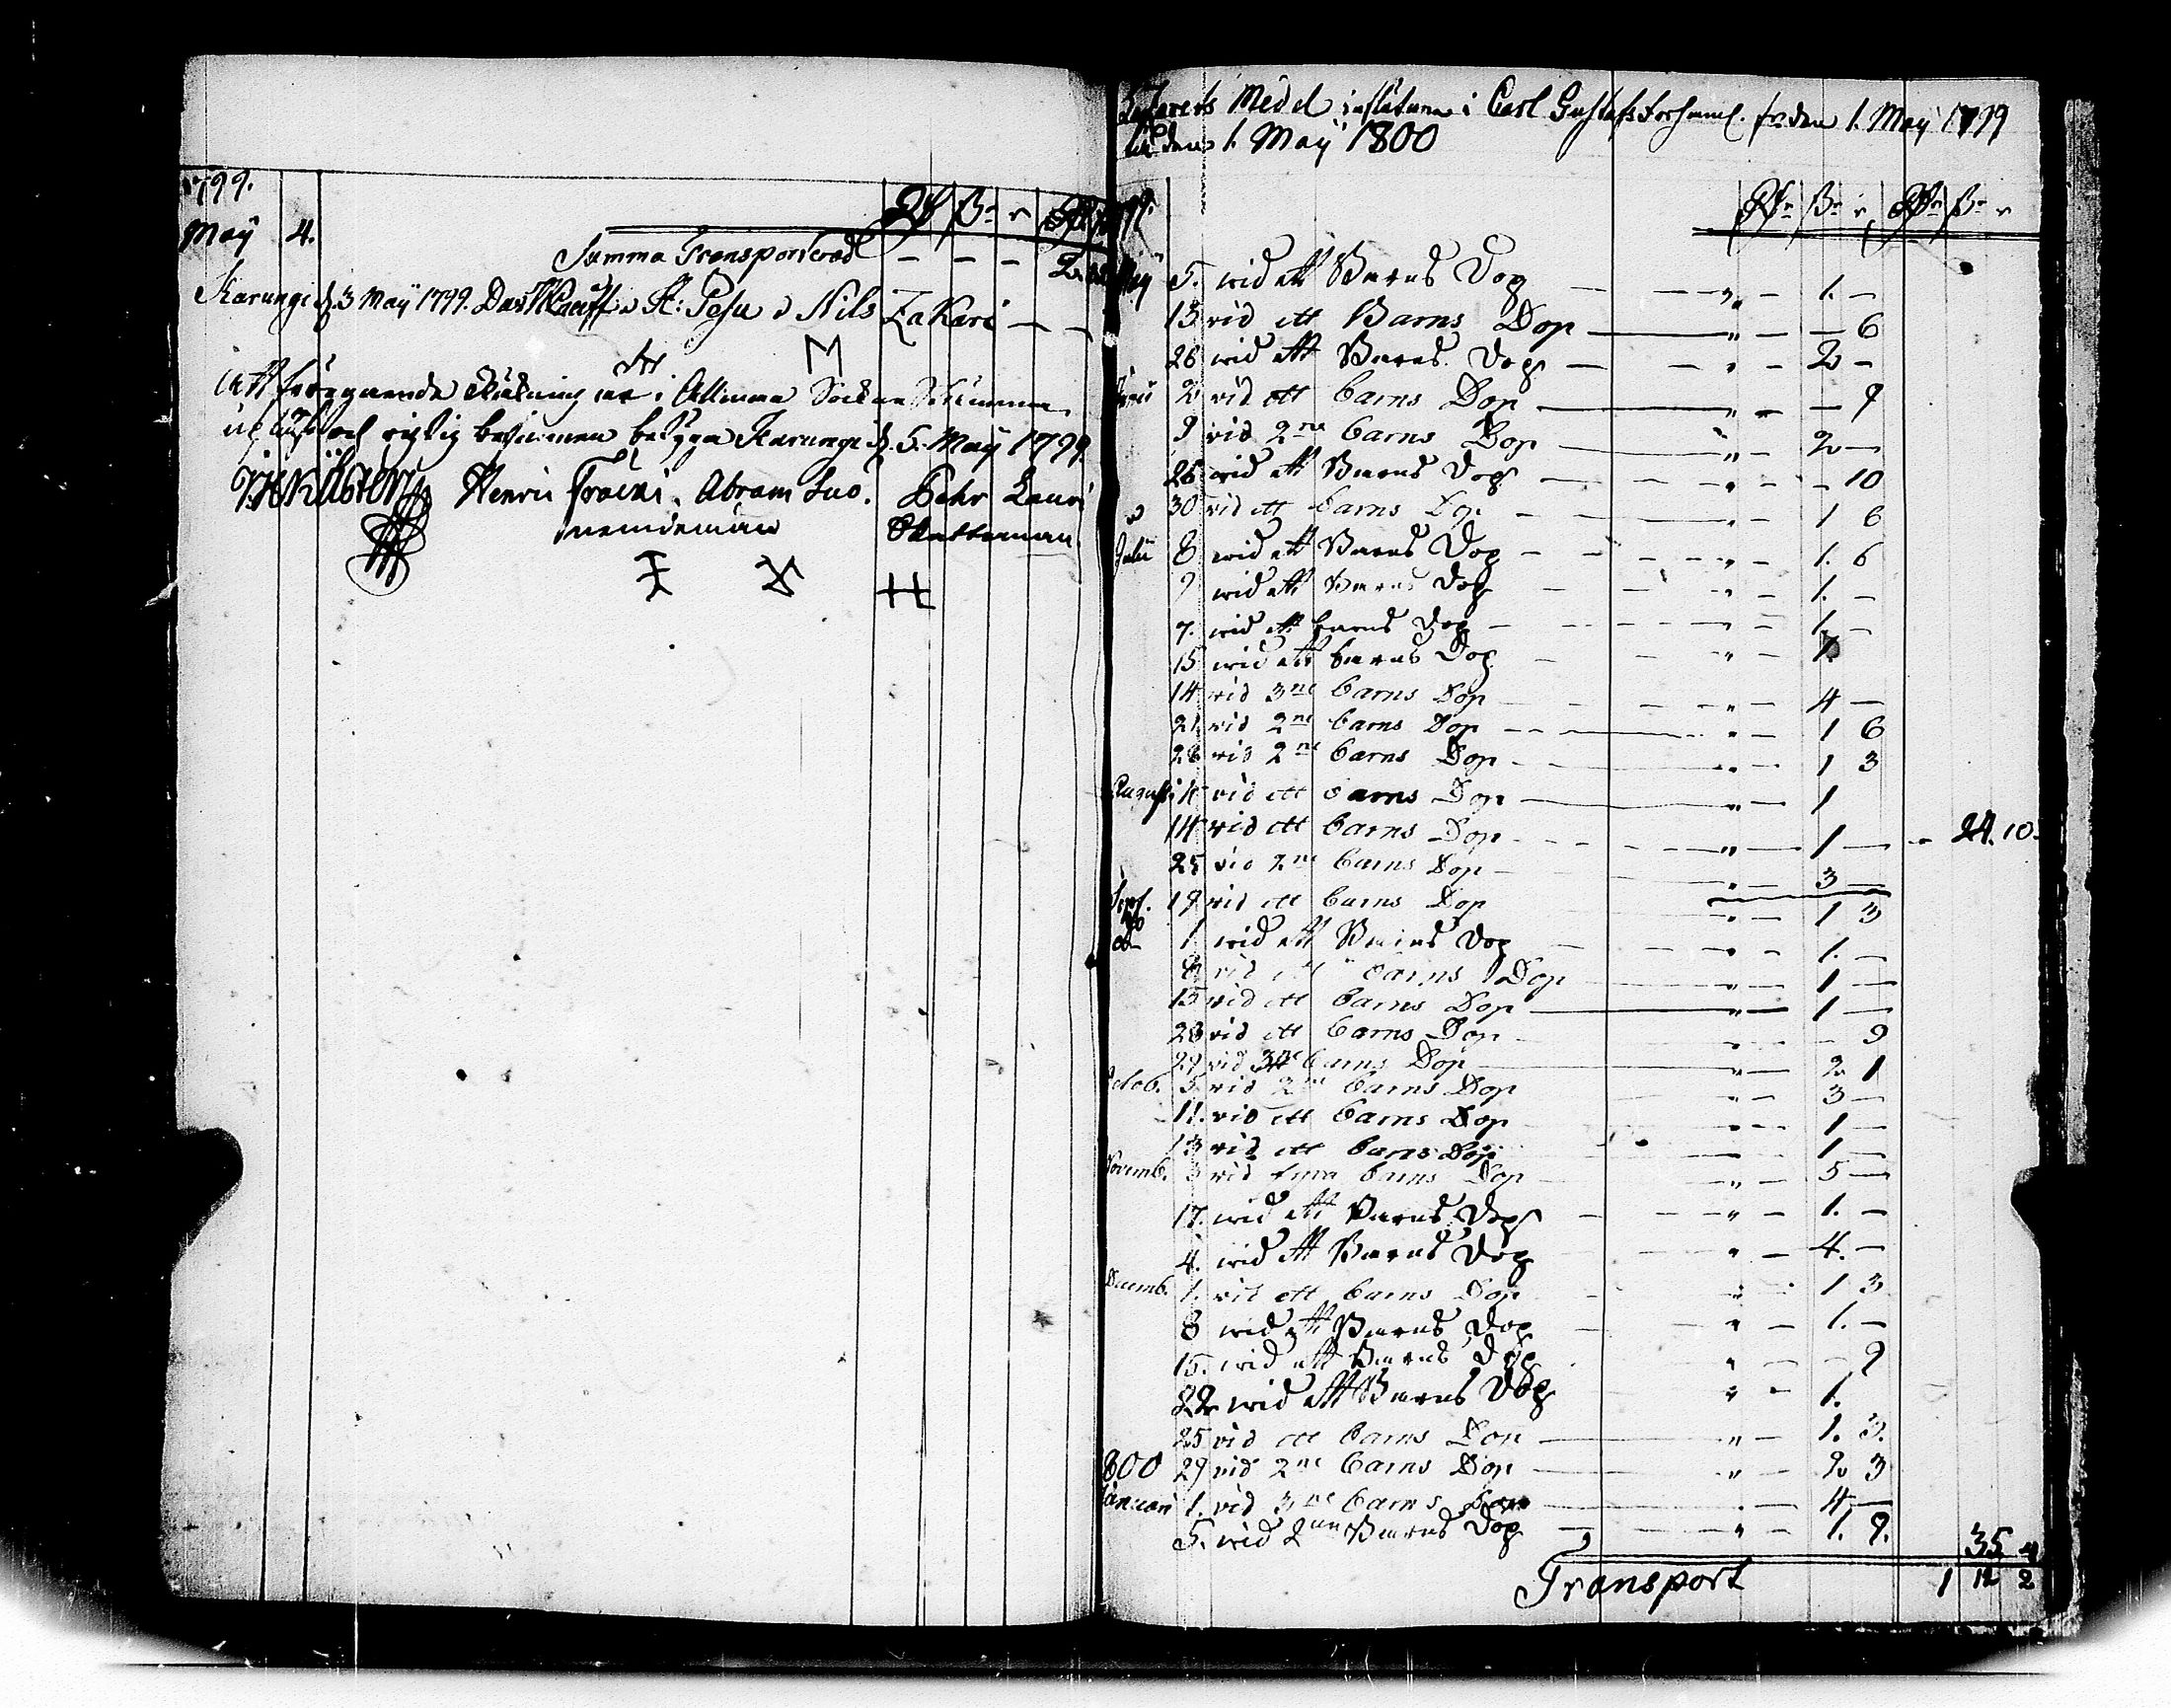 1799.
May 4.
Summa Transporterad — — —
Karungi d. 3 May 1799. Nils Zakari — —
M
Att föregående Räkning är i Allmän Sockne Stämma
och riktig befunnen betyga Karungi d. 5. May 1799
Henric Abram Luo. Pehr Lauri
nemndeman
H
Medel influtne i Carl Gustafs Forsaml. från den 1. May 1799
till den 1 May 1800
1799.
May 5. wid ett Barns Dop — — „ — 1. —
13 vid ett Barns Dop — „ — — 6
26 wid ett Barns Dop — — „ — 2 —
Junii 2 vid ett barns Dop — „ — — 9
9 vid 2ne barns Dop — „ — 2 —
26 wid ett Barns Dop — — „ — — 10
30 vid ett barns Dop — — „ — 1 6
Julii 8 wid ett Barns Dop — — „ — 1. 6
wid ett Barns Dop — — „ — 1. —
7. wid ett barns Dop — — „ — 1. —
15 wid ett barns Dop — — „ — 1.
14 vid 3ne barns Dop — — „ — 4 —
21 vid 2ne barns Dop — — „ — 1 6
26 vid 2ne barns Dop — — „ — 1 3
Augusti vid ett barns Dop — „ — 1
14 vid ett barns Dop — — „ — 1 — — 24. 10.
25 vid 2ne barns Dop — „ — 3 —
Sept. 19 vid ett barns Dop „ — 1 3
1. wid ett Barns Dop — — „ — 1. —
8 vid ett barns Dop — „ — 1 —
15 vid ett barns Dop — „ — 1 —
28 vid ett barns Dop — „ — — 9
29 vid barns Dop — „ — 2 1
Octob. 5 vid 2ne barns Dop „ — 3 —
11. vid ett barns Dop „ — 1 —
13 vid ett barns Dop — 1 —
Novemb. 3 vid fyra barns Dop — „ — 5 —
17. wid ett Barns Dop — — „ — 1. —
4. wid ett Barns Dop — — „ — 4. —
Decemb. 1. vid ett barns Dop — „ — 1 3
8 wid ett Barns Dop — — „ — 1. —
15. wid ett Barns Dop „ — — 9
22 wid ett Barns Dop „ — 1.
25 vid ett barns Dop — „ — 1. 3.
1800 29 vid 2ne barns Dop — „ — 2 3
Januari 1. vid 3ne barns Dop — „ — 4 —
5. wid 2ne Barns Dop — — „ — 1. 9.
35 4
Transport 1 12 2